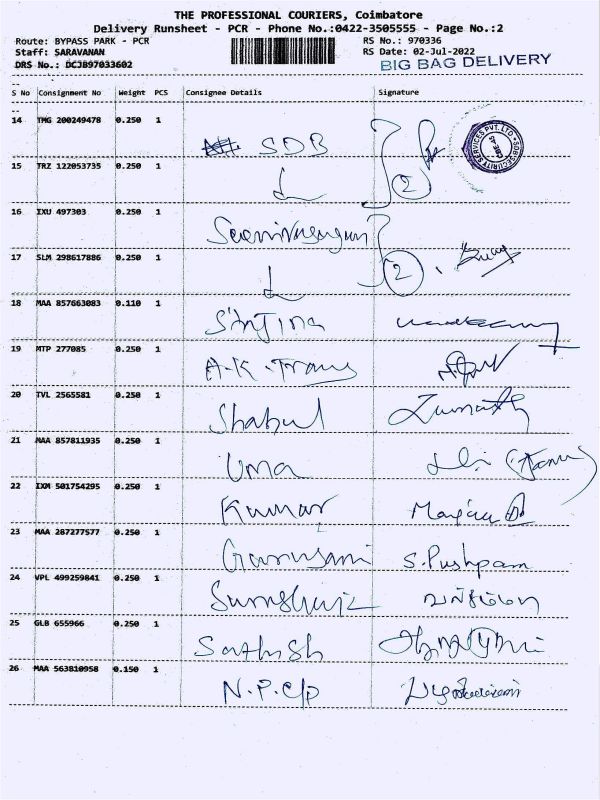 THE PROFESSIONAL COURIERS, Coimbatore
Delivery Runsheet - PCR - Phone No.:0422-3505555 - Page No.:2
Route: BYPASS PARK - PCR RS No.: 970336
Staff: SARAVANAN RS Date: 02-Jul-2022
DRS No.: DCJB97033602 BIG BAG DELIVERY
S No Consignment No Weight PCS Consignee Details Signature
14 TMG 200249478 0.250 1 SDB
SDB SECURITY SERVICES PVT. LTD
15 TRZ 122053735 0.250 1 2
16 IXU 497303 0.250 1
17 SLM 298617886 0.250 1 2
18 MAA 857663083 0.110 1
19 MTP 277085 0.250 1 A.K. Trans
20 TVL 2565581 0.250 1 Shahul
21 MAA 857811935 0.250 1 Uma
22 IXM 501754295 0.250 1 Kumar
23 MAA 287277577 0.250 1 S. Pushpam
24 VPL 499259841 0.250 1
25 GLB 655966 0.250 1 Sathish
26 MAA 563810958 0.150 1 N.P. C/P